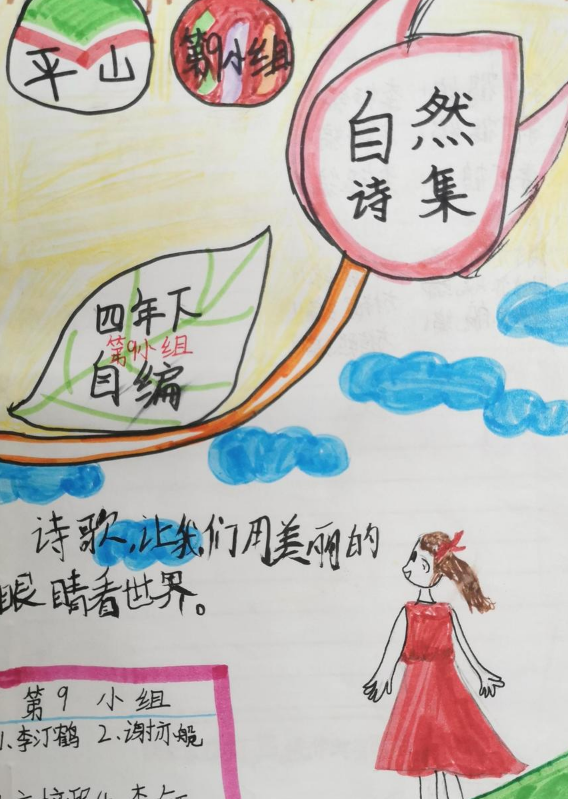 平山
第9小组
自然
诗集
四年下
第9小组
自编
诗歌,让我们用美丽的
眼睛看世界。
第9小组
1.李汀鹤 2.谢亦